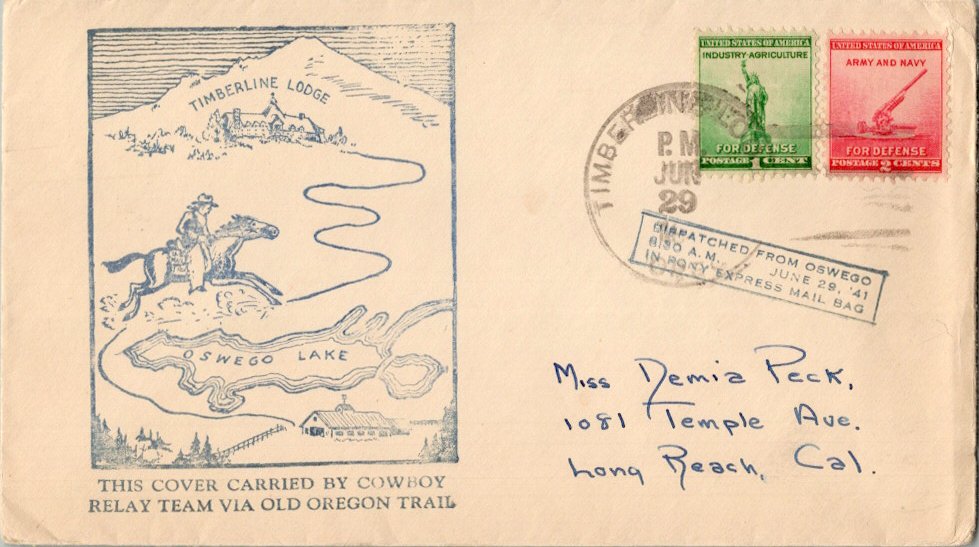 TIMBERLINE LODGE
OSWEGO LAKE
THIS COVER CARRIED BY COWBOY
RELAY TEAM VIA OLD OREGON TRAIL
UNITED STATES OF AMERICA
INDUSTRY-AGRICULTURE
FOR DEFENSE
POSTAGE 1 CENT
UNITED STATES OF AMERICA
ARMY AND NAVY
FOR DEFENSE
POSTAGE 2 CENTS
P.M.
JUN
29
DISPATCHED FROM OSWEGO
8:30 A.M. . . . JUNE 29, '41
IN PONY EXPRESS MAIL BAG
Miss Demia Peck,
1081 Temple Ave.
Long Beach, Cal.